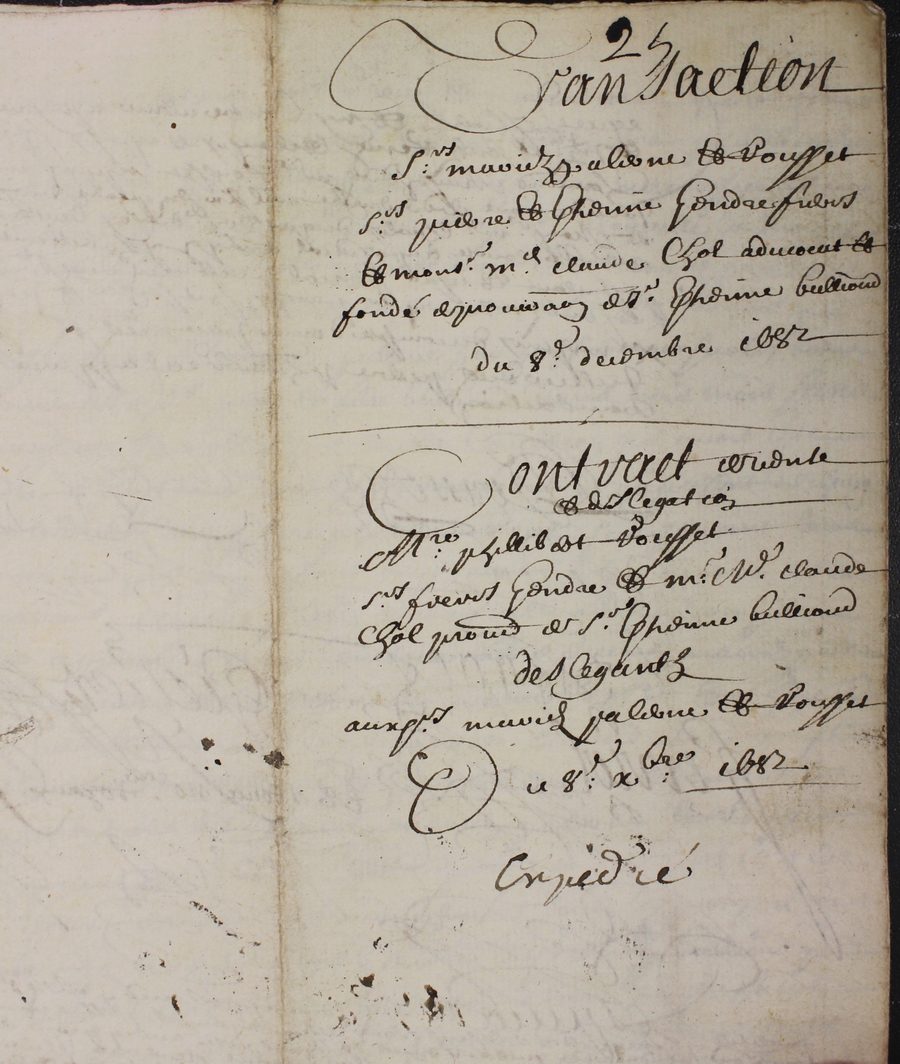 25
Transaction
S.rs maviez palerne & Rousset
S.rs pierre & Estienne Gendre freres
& mons.r m.e claude Chol advocat &
fondé de procuraon de S.r Estienne bullioud
du 8.e decembre 1682
Contract de vente
& deslegation
M.re phillibert Rousset
S.rs freres Gendre & m.re M.e claude
Chol procu.r de S.r Estienne bullioud
deslegantz
aux s.rs maviez palerne & Rousset
Du 8.e xbre 1682
Expedié